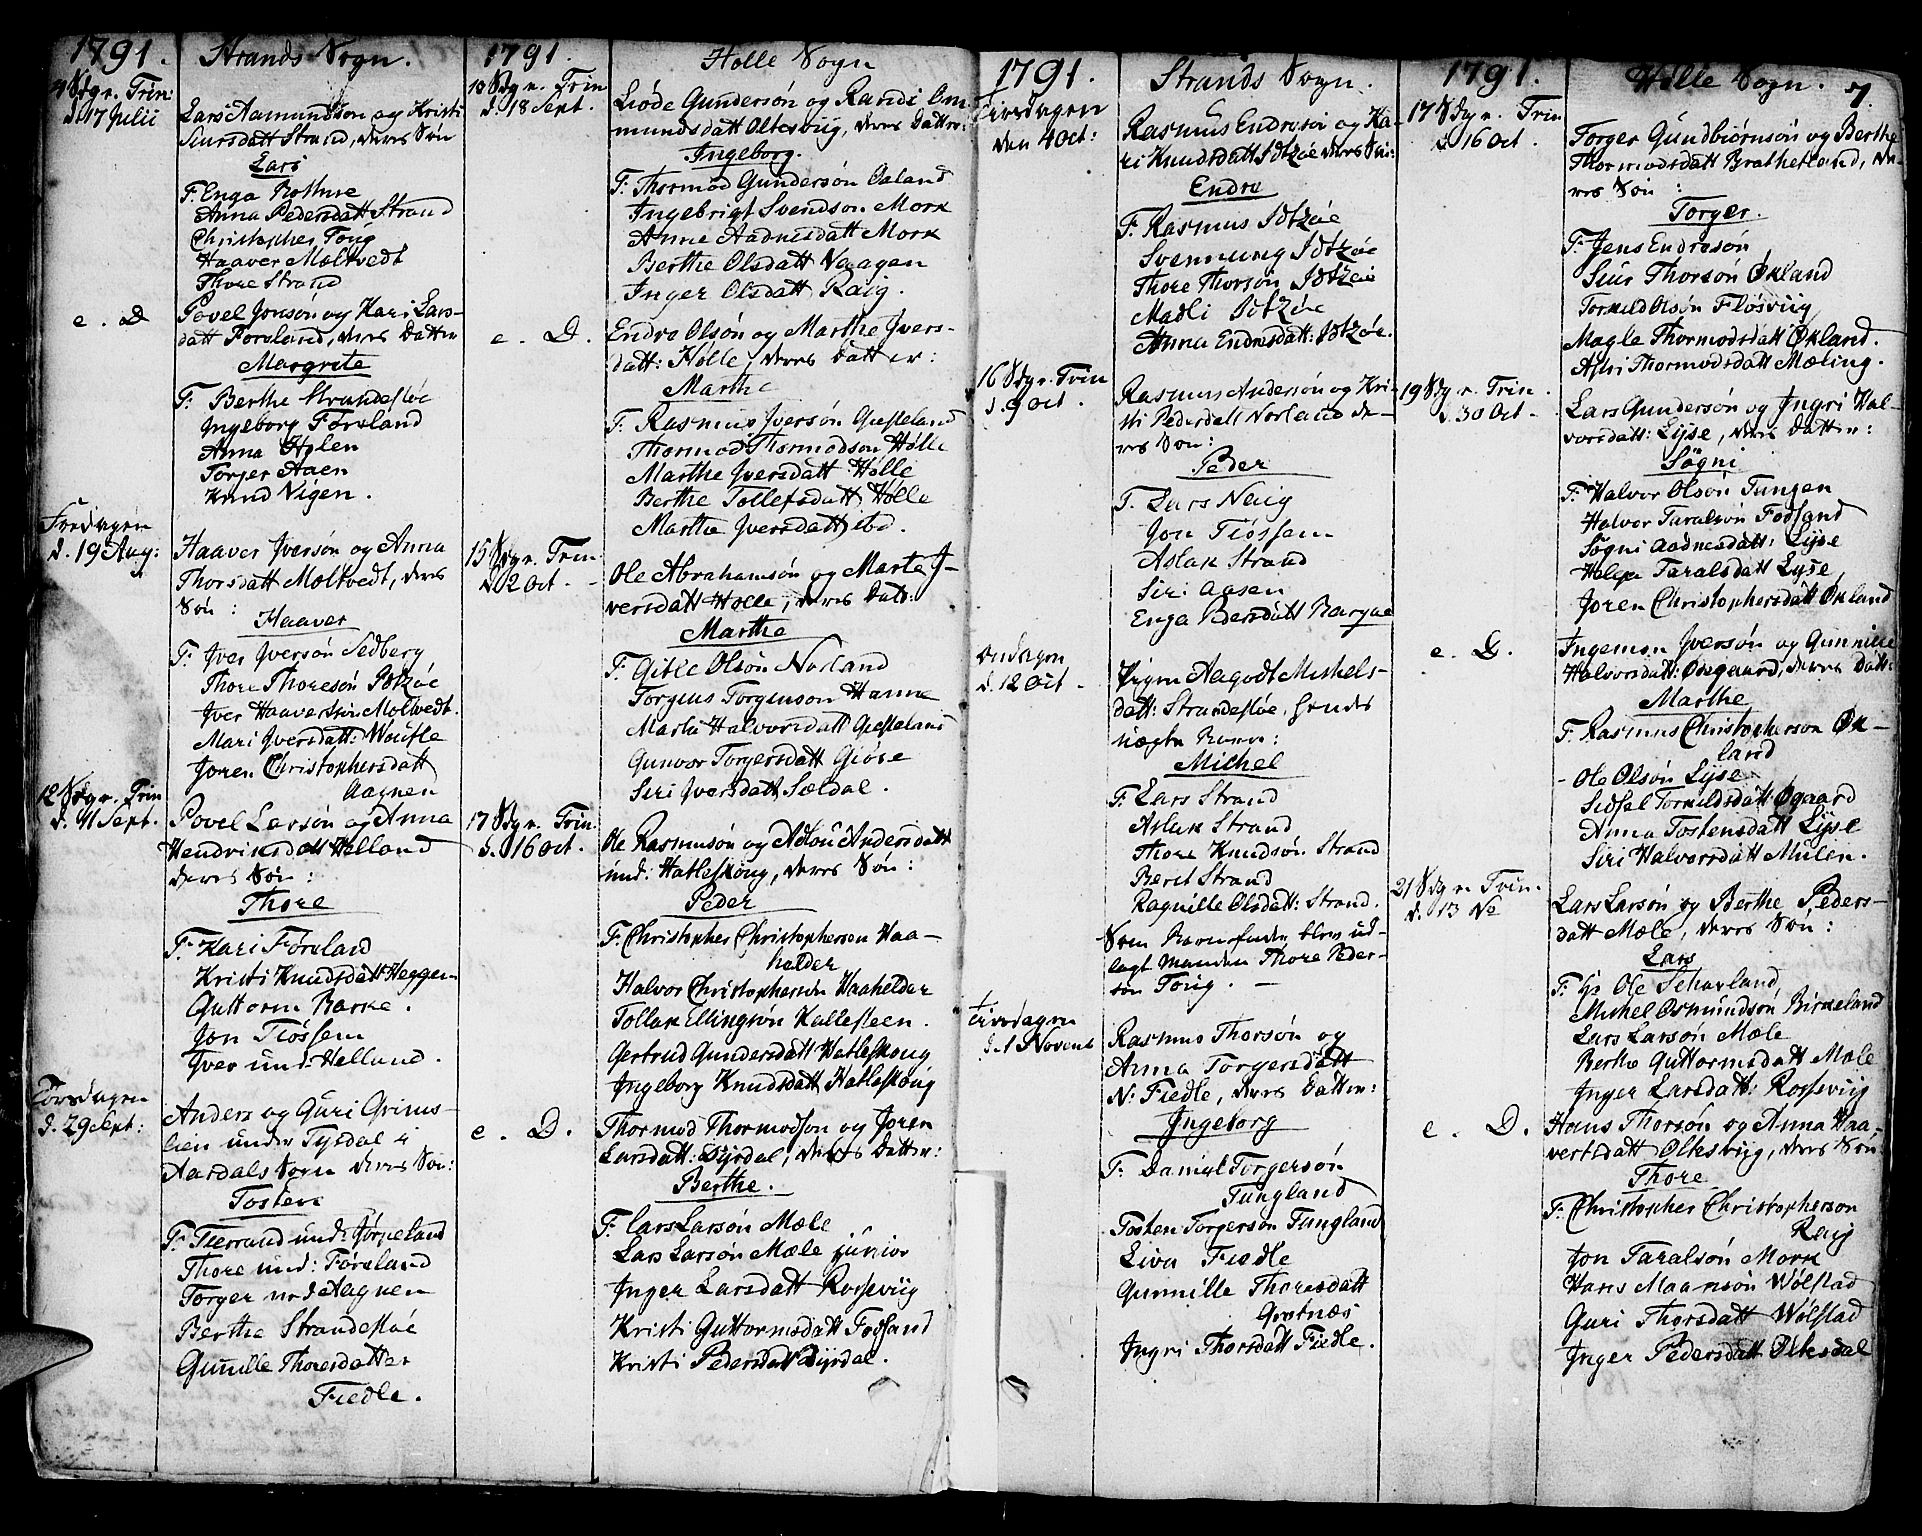 1791.
Strands Sogn.
4 Sdg. e. Trin:
d. 17 Julii
Lars Aamundsøn og Kristi
Siursdatt Strand, deres Søn
Lars
F. Enga Bothne
Anna Pedersdatt Strand
Christopher Tong
Haaver Moltvedt
Thore Strand
e. D
Povel Jonsøn og Kari Lars-
datt Forsland, deres Datter
Margrete
F. Berthe Strandesløe
Ingeborg Førsland
Anna Holen
Torger Aaen
Knud Vigen.
Fredagen
d. 19 Aug:
Haaver Iversøn og Anna
Thorsdatt Moltvedt, deres
Søn:
Haaver
F. Iver Iversøn Sedberg
Thore Thoresøn Idtzøe
Iver Haaversøn Moltvedt.
Mari Iversdatt:
Joren Christophersdatt
Aagnen
12 Sdg e. Trin
d. 11 Sept.
Povel Larsøn og Anna
Hendriksdatt Helland
deres Søn:
Thore
F. Kari Førsland
Kristi Knudsdatt Heggen
Guttorm Barke.
Jon Tiøssem
Iver und. Helland.
Torsdagen
d. 29 Sept:
Anders og Guri Grims-
lien under Tysdal i
Aardals Sogn deres Søn:
Tosten
F. und: Jørpeland
Thore und: Førsland
Torger Aagnen
Berthe Strandesløe
Gunille Thoresdatter
Fiedle.
1791.
Holle Sogn
13 Sdg e. Trin
d. 18 Sept.
Liøde Gundersøn og Randi Om
mundsdatt Oltesviig, deres Datter:
Ingeborg.
F. Thormod Gundersøn Oaland
Ingebrigt Svendson Mork
Anne Aadnesdatt Mork
Berthe Olsdatt Vaagen
Inger Olsdatt Raig.
e. D.
Endre Olsøn og Marthe Ivers-
datt: Hølle, deres Datter:
Marthe
F. Rasmus Iversøn Giesteland
Thormod Thormodsøn Hølle
Marthe Iversdatt Hølle
Berthe Tollefsdatt Hølle
Marthe Iversdatt ibd.
15 Sdg e. Trin
d. 2 Oct.
Ole Abrahamsøn og Marte I-
versdatt Hølle, deres Datt:
Marthe
F. Gitle Olsøn Norland
Torgius Torgiussøn Hanne
Marthe Halvorsdatt Giesteland
Gunvor Torgersdatt Giøse
Siri Iversdatt Sældal.
17 Sdg e. Trin.
d. 16 Oct.
Ole Rasmusøn og Andersdatt
und: Hatleskong, deres Søn:
Peder
F. Christopher Christopherson Haa-
helder
Halvor Christophersøn Haahelder
Tollak Ellingsøn Kallesteen.
Gertrud Gundersdatt Hatleskong
Ingeborg Knudsdatt Hatleskong
e. D.
Thormod Thormodson og Joren
Larsdatt: Dyrdal, deres Datter:
Berthe.
F. Lars Larsøn Mæle
Lars Larsøn Mæle júnior
Inger Larsdatt Rosseviig
Kristi Guttormsdatt Fodsand
Kristi Pedersdatt Dyrdal.
1791.
Strands Sogn.
Tirsdagen
den 4 Oct:
Rasmus Endresøn og Ka-
ri Knudsdatt Idtzøe deres Søn:
Endre
F. Rasmus Idtzøe
Svennung Idtzøe
Thore Thorsøn Idtzøe
Madli Idtzøe
Anna Endresdatt: Idtzøe.
16 Sdg e. Trin
d. 9 Oct.
Rasmus Andersøn og Kri-
sti Pedersdatt Norland de-
res Søn:
Peder
F. Lars Neaig
Jon Tiøssem
Aslak Strand
Siri Aasen
Enga Pedersdatt Barque
Onsdagen
d. 12 Oct.
Pigen Aagodt Mickels-
datt: Strandesløe, hendes
uægte Barn:
Michel
F. Lars Strand
Aslak Strand
Thore Knudsøn Strand
Berit Strand
Ragnille Olsdatt: Strand.
Som Barnefader blev ud-
lagt Manden Thore Peder-
søn Tong.
Tirsdagen
d. 1 Novemb
Rasmus Thorsøn og
Anna Torgersdatt
N: Fiedle, deres Datter:
Ingeborg
F. Daniel Torgersøn
Tungland
Tosten Torgersøn Tungland
Liva Fiedle
Gunnille Thoresdatt
Grotnæs
Ingri Thorsdatt Fiedle.
1791.
Hølle Sogn.
7.
17 Sdg e. Trin.
d. 16 Oct.
Torger Gundbiørnsøn og Berthe
Thormodsdatt Bratheland, de-
res Søn:
Torger.
F. Jens Endresøn
Siur Thorsøn Økland
Torkild Olsøn Fløsviig
Magle Thormodsdatt Økland.
Astri Thormodsdatt Mæling.
19 Sdg e. Trin.
d. 30 Oct.
Lars Gundersøn og Ingri Hal-
vorsdatt: Lyse, deres Datter:
Søgni
F. Halvor Olsøn Tungen
Halvor Taralsøn Fodsand
Søgni Aadnesdatt: Lyse
Taralsdatt Lyse,
Joren Christophersdatt Økland
e. D.
Ingemon Iversøn og Gunnille
Halvorsdatt: Øsegaard, deres Datt:
Marthe
F. Rasmus Christopherson Øk-
land
Ole Olsøn Lyse
Sidsel Torkildsdatt Øgaard
Anna Tostensdatt Lyse
Siri Halvorsdatt Mulen.
21 Sdg e. Trin.
d. 13 No
Lars Larsøn og Berthe Peders-
datt Mæle, deres Søn:
Lars
F. Hr Ole Schavland
Michel Osmundsøn Birkeland
Lars Larsøn Mæle
Berthe Guttormsdatt Mæle
Inger Larsdatt: Rossviig
e. D.
Hans Thorsøn og Anna Haa-
versdatt Oltesviig, deres Søn
Thore
F. Christopher Christopherson
Raig
Jon Taralsøn Mork
Hans Maansøn Wølstad
Guri Thorsdatt Wølstad
Inger Pedersdatt Oltesdal